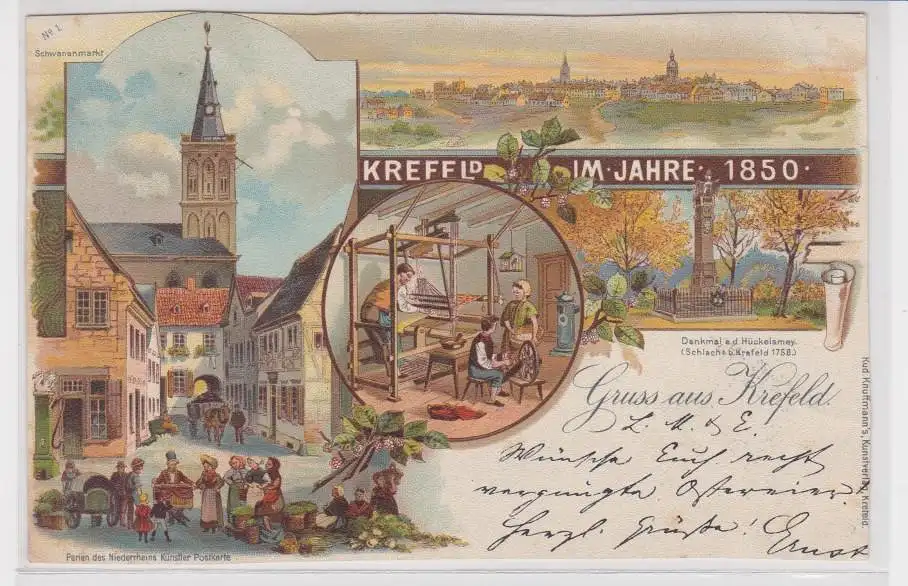 No 1.
Schwanenmarkt
KREFELD IM · JAHRE · 1850 ·
Denkmal a.d Hückelsmey.
(Schlacht b. Krefeld 1758.)
Gruss aus Krefeld.
L. M. & E.
Wünsche Euch recht
vergnügte Ostereier
Herzl. Grüße! Ernst
Perlen des Niederrheins Künstler Postkarte
Knuffmann's, Kunstverlag, Krefeld.